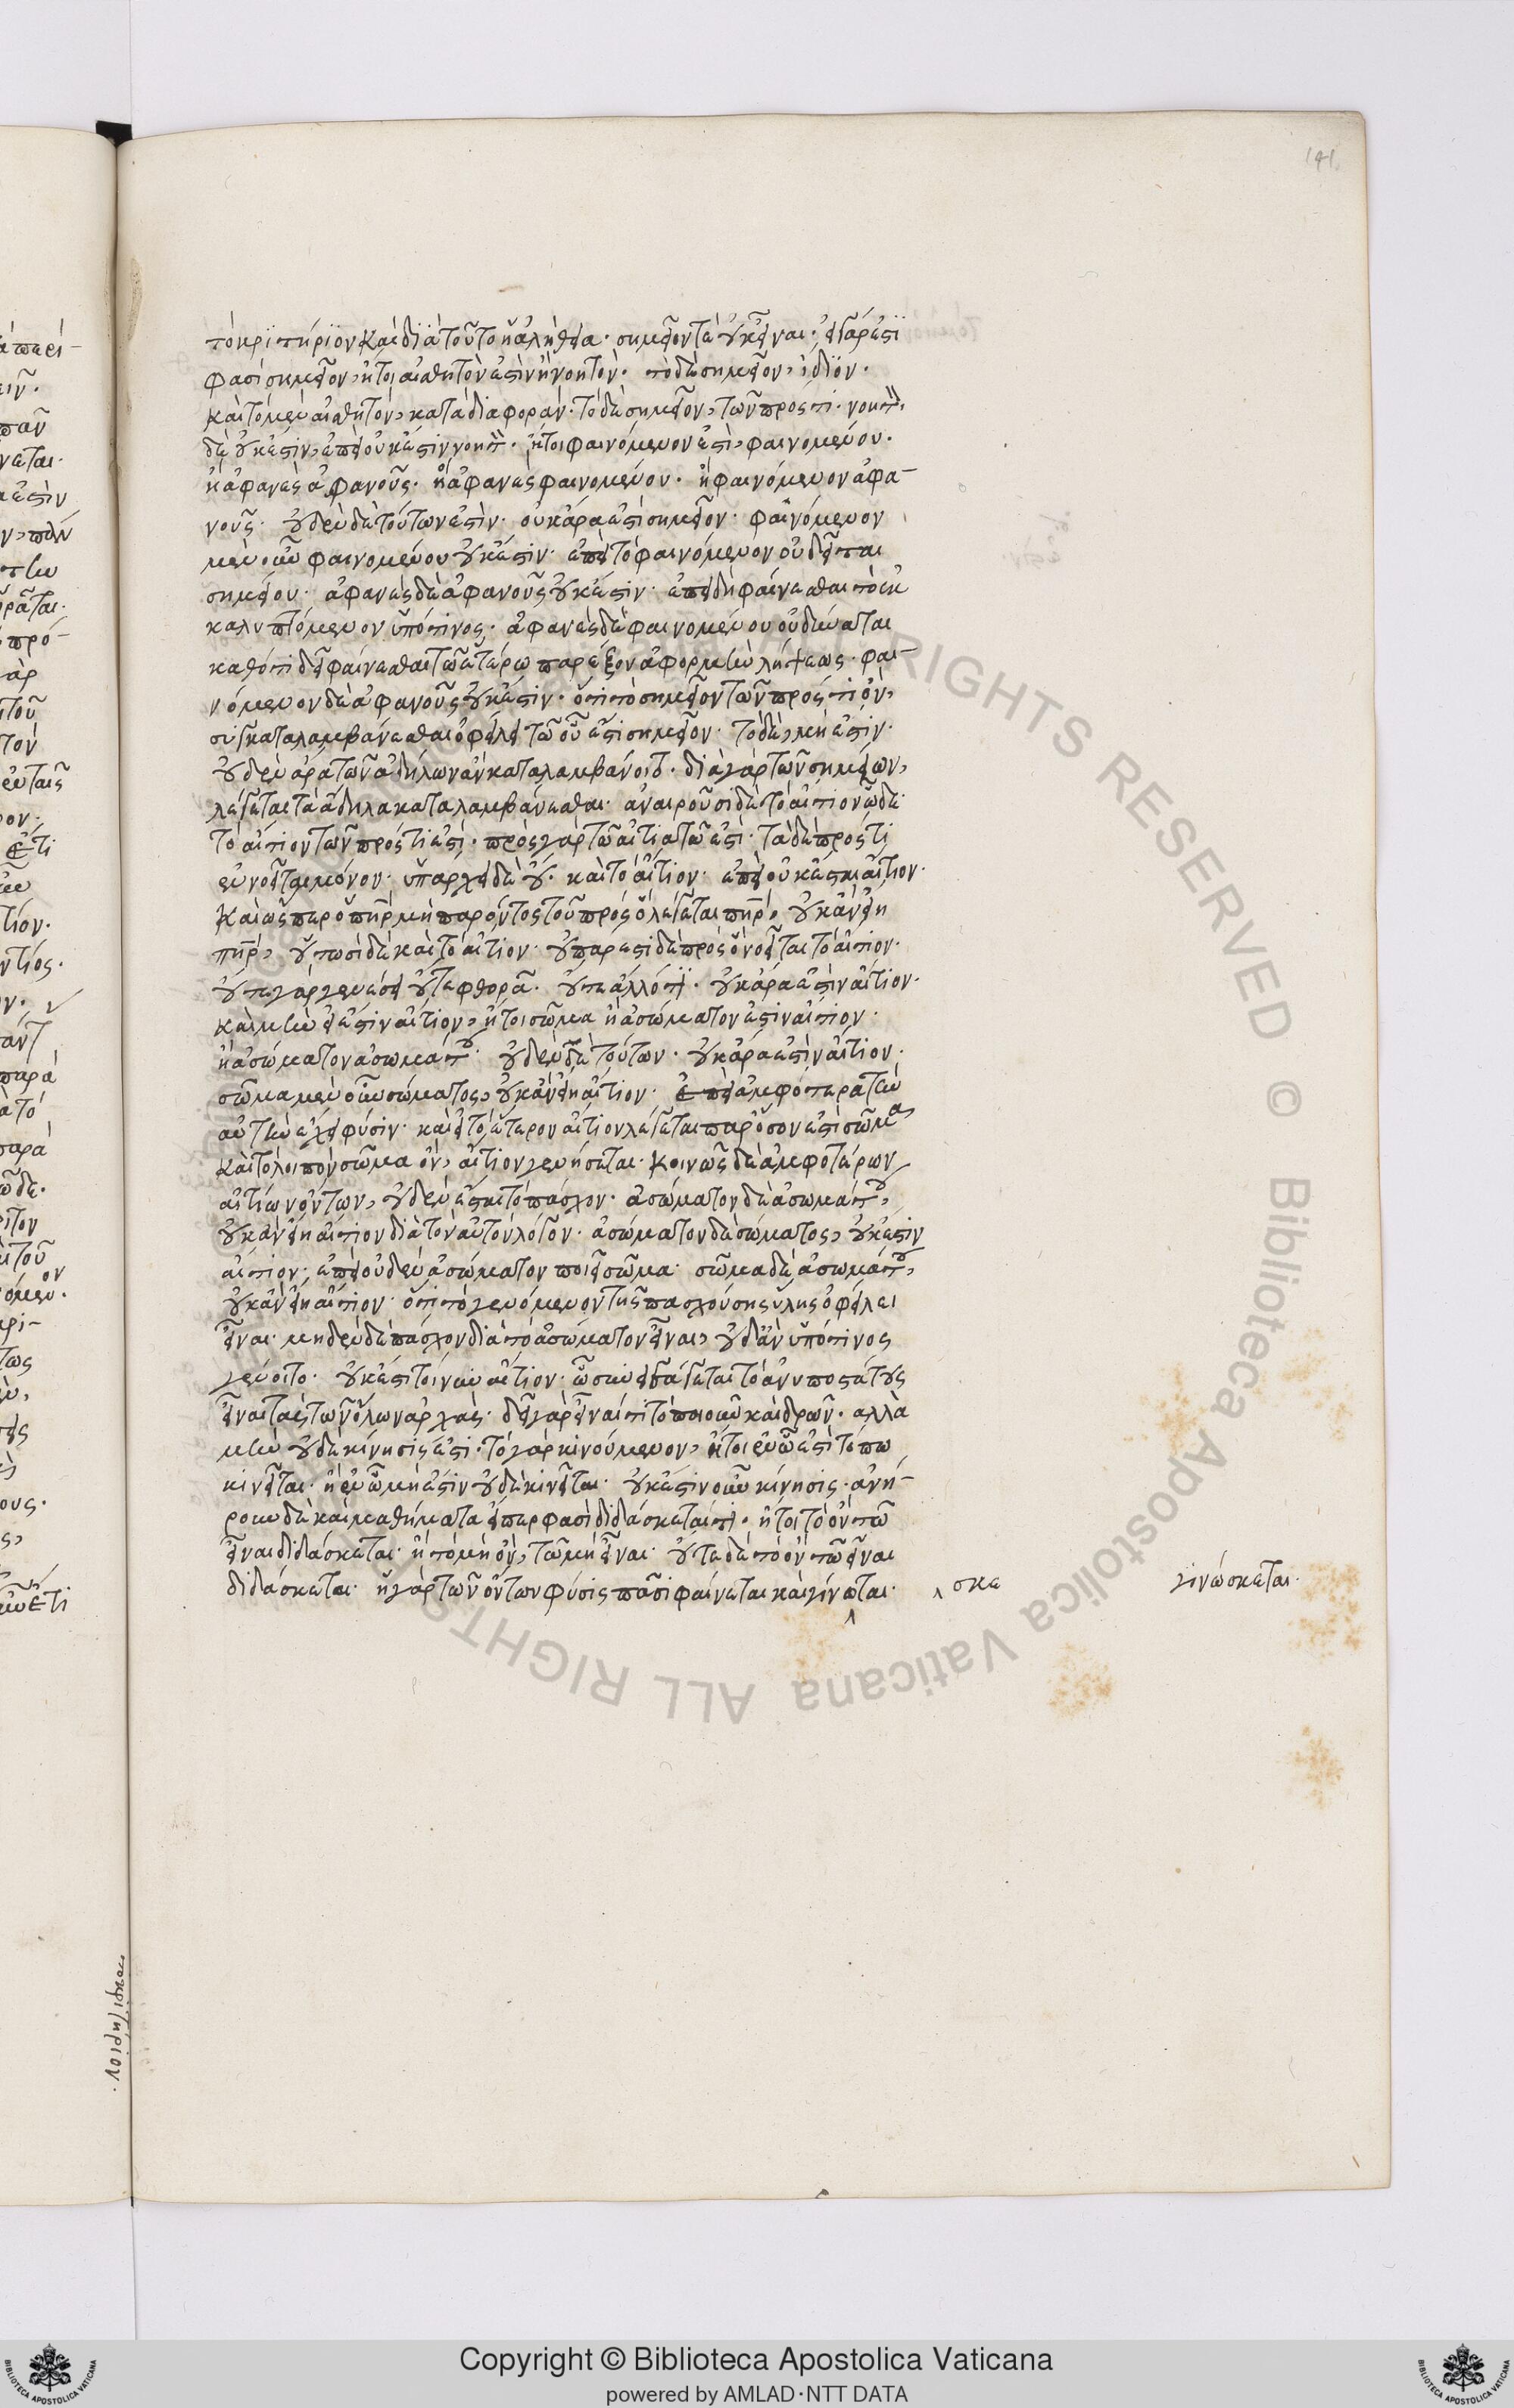 141
τὸ κριτήριον καὶ διατοῦτο ἡ ἀλήθεια. σημεῖόν τε οὐκ εἶναι. εἰ γάρ ἐστι
φασὶ σημεῖον, ἤτοι αἰσθητόν ἐστιν ἢ νοητόν. τὸ δὲ σημεῖον, ἴδιον.
καὶ τὸ μὲν αἰσθητόν, κατὰ διαφοράν. τὸ δὲ σημεῖον, τῶν πρός τι. νοητὸν
δὲ οὐκ ἔστιν, ἐπεὶ οὐκ ἔστιν νοητὸν. ἤτοι φαινόμενον ἐστὶ, φαινομένου.
ἢ ἀφανὲς ἀφανοῦς. ἢ ἀφανὲς φαινομένου. ἢ φαινόμενον ἀφα-
νοῦς. οὐδὲν δὲ τούτων ἐστὶν. οὐκ ἄρα ἐστὶ σημεῖον. φαινόμενον
μὲν οὖν φαινομένου οὐκ ἔστιν. ἐπεὶ τὸ φαινόμενον οὐ δεῖται
σημείου. ἀφανὲς δὲ ἀφανοῦς οὐκ ἔστιν. ἐπεὶ δεῖ φαίνεσθαι τὸ ἐκ
καλυπτόμενον ὑπό τινος. ἀφανὲς δὲ φαινομένου οὐ δύναται
καθότι δεῖ φαίνεσθαι τῷ ἑτέρῳ παρέξον ἀφορμὴν λήψεως. φαι-
νόμενον δὲ ἀφανοῦς οὐκ ἔστιν. ὅτι τὸ σημεῖον τῶν πρός τι ὂν,
συγκαταλαμβάνεσθαι ὀφείλει τῷ οὗ ἐστι σημεῖον. τὸ δὲ, μὴ ἔστιν.
οὐδὲν ἄρα τῶν ἀδήλων ἂν καταλαμβάνοιτο. διὰ γὰρ τῶν σημείων,
λέγεται τὰ ἄδηλα καταλαμβάνεσθαι. ἀναιροῦσι δὲ τὸ αἴτιον ὧδε.
τὸ αἴτιον τῶν πρός τι ἐστί. πρὸς γὰρ τῷ αἰτιατῷ ἐστί. τὰ δὲ πρός τι
ἐννοεῖται μόνον. ὑπάρχει δὲ οὔ. καὶ τὸ αἴτιον. ἐπεὶ οὐκ ἔστι αἴτιον.
καὶ ὥσπερ ὁ πατὴρ μὴ παρόντος τοῦ πρὸς ὃ λέγεται πατὴρ, οὐκ ἂν εἴη
πατὴρ, οὑτωσὶ δὲ καὶ τὸ αἴτιον. οὐ πάρεστι δὲ πρὸς ὃ νοεῖται τὸ αἴτιον.
οὔτε γὰρ γένεσις οὔτε φθορὰ. οὔτε ἄλλό τι. οὐκ ἄρα ἐστὶν αἴτιον.
καὶ μὴν εἰ ἔστιν αἴτιον, ἤτοι σῶμα ἢ ἀσώματον ἐστὶν αἴτιον.
ἢ ἀσώματον ἀσωμάτου. οὐδὲν δὲ τούτων. οὐκ ἄρα ἐστὶν αἴτιον.
σῶμα μὲν οὖν σώματος, οὐκ ἂν εἴη αἴτιον. ἐπεὶ ἀμφότερα τὴν
αὐτὴν ἔχει φύσιν. καὶ εἰ τὸ ἕτερον αἴτιον λέγεται παρόσον ἐστὶ σῶμα,
καὶ τὸ λοιπὸν σῶμα ὂν, αἴτιον γενήσεται. κοινῶς δὲ ἀμφοτέρων
αἰτίων ὄντων, οὐδὲν ἔσται τὸ πάσχον. ἀσώματον δὲ ἀσωμάτου,
οὐκ ἂν εἴη αἴτιον διὰ τὸν αὐτὸν λόγον. ἀσώματον δὲ σώματος, οὐκ ἔστιν
αἴτιον. ἐπεὶ οὐδὲν ἀσώματον ποιεῖ σῶμα. σῶμα δὲ ἀσωμάτου,
οὐκ ἂν εἴη αἴτιον. ὅτι τὸ γενόμενον τῆς πασχούσης ὕλης ὀφείλει
εἶναι. μηδὲν δὲ πάσχον διὰ τὸ ἀσώματον εἶναι, οὐδ' ἂν ὑπό τινος
γένοιτο. οὐκ ἔστι τοίνυν αἴτιον. ὧ συνεισάγεται τὸ ἀνυποστάτους
εἶναι τὰς τῶν ὅλων ἀρχὰς. δεῖ γὰρ εἶναί τι τὸ ποιοῦν καὶ δρῶν. ἀλλὰ
μὴν οὐδὲ κίνησις ἐστι. τὸ γὰρ κινούμενον, ἤτοι ἐν ᾧ ἐστὶ τόπω
κινεῖται. ἢ ἐν ᾧ μὴ ἔστιν οὐδὲ κινεῖται. οὐκ ἔστιν οὖν κίνησις. ἀνή-
ρουν δὲ καὶ μαθήματα εἴπερ φασὶ διδάσκεταί τι. ἤτοι τὸ ὂν τῷ
εἶναι διδάσκεται. ἢ τὸ μὴ ὂν, τῷ μὴ εἶναι. οὔτε δὲ τὸ ὂν τῷ εἶναι
διδάσκεται. ἡ γὰρ τῶν ὄντων φύσις πᾶσι φαίνεται καὶ γινώται. σκε γινώσκεται.
τὸ κριτήριον.
Copyright © Biblioteca Apostolica Vaticana
powered by AMLAD·NTT DATA